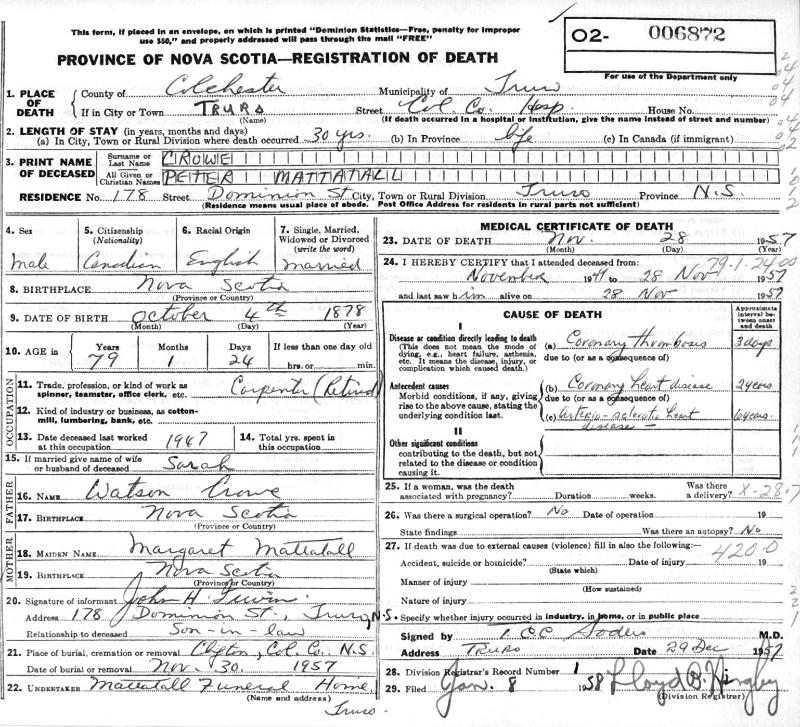 This form, if placed in an envelope, on which is printed "Dominion Statistics—Free, penalty for improper
use $50," and properly addressed will pass through the mail "FREE"
02- 006872
PROVINCE OF NOVA SCOTIA—REGISTRATION OF DEATH
For use of the Department only
1. PLACE OF DEATH County of Colchester Municipality of Truro
If in City or Town TRURO Street Col. Co. Hosp. House No.
(Name) (If death occurred in a hospital or institution, give the name instead of street and number)
2. LENGTH OF STAY (in years, months and days)
(a) In City, Town or Rural Division where death occurred 30 yrs. (b) In Province life (c) In Canada (if immigrant)
3. PRINT NAME OF DECEASED Surname or Last Name CROWE
All Given or Christian Names PETER MATTATALL
RESIDENCE No. 178 Street Dominion St City, Town or Rural Division Truro Province N.S.
(Residence means usual place of abode. Post Office Address for residents in rural parts not sufficient)
4. Sex 5. Citizenship (Nationality) 6. Racial Origin 7. Single, Married, Widowed or Divorced (write the word)
male Canadian English married
8. BIRTHPLACE Nova Scotia
(Province or Country)
9. DATE OF BIRTH October 4th 1878
(Month) (Day) (Year)
10. AGE in Years Months Days If less than one day old
79 1 24 hrs. or min.
OCCUPATION
11. Trade, profession, or kind of work as spinner, teamster, office clerk, etc. Carpenter (Retired)
12. Kind of industry or business, as cotton-mill, lumbering, bank, etc.
13. Date deceased last worked at this occupation 1947 14. Total yrs. spent in this occupation
15. If married give name of wife or husband of deceased Sarah
FATHER
16. NAME Watson Crowe
17. BIRTHPLACE Nova Scotia
(Province or Country)
MOTHER
18. MAIDEN NAME Margaret Mattatall
19. BIRTHPLACE Nova Scotia
(Province or Country)
20. Signature of informant John H.
Address 178 Dominion St., Truro, N.S.
Relationship to deceased Son-in-law
21. Place of burial, cremation or removal Clifton, Col. Co. N.S.
Date of burial or removal Nov. 30. 1957
22. UNDERTAKER Mattatall Funeral Home
(Name and address)
Truro
MEDICAL CERTIFICATE OF DEATH
23. DATE OF DEATH Nov. 28 1957
(Month) (Day) (Year)
24. I HEREBY CERTIFY that I attended deceased from:
79-1-24-00
November 1947 to 28 Nov 1957
and last saw him alive on 28 Nov 1957
CAUSE OF DEATH Approximate interval between onset and death
I
Disease or condition directly leading to death (a) Coronary thrombosis 3 days
(This does not mean the mode of dying, e.g., heart failure, asthenia, etc. It means the disease, injury, or complication which caused death.) due to (or as a consequence of)
Antecedent causes (b) Coronary heart disease 2 years
Morbid conditions, if any, giving rise to the above cause, stating the underlying condition last. due to (or as a consequence of)
(c) arterio-sclerotic heart disease - years.
II
Other significant conditions
contributing to the death, but not related to the disease or condition causing it.
25. If a woman, was the death associated with pregnancy? Duration weeks. Was there a delivery? X-28-7
26. Was there a surgical operation? No Date of operation 19
State findings Was there an autopsy? No
27. If death was due to external causes (violence) fill in also the following:— 420 0
Accident, suicide or homicide? Date of injury 19
(State which)
Manner of injury
(How sustained)
Nature of injury
Specify whether injury occurred in industry, in home, or in public place
Signed by M.D.
Address TRURO Date 29 Dec 1957
28. Division Registrar's Record Number 1
29. Filed Jan. 8 1958 Lloyd B.
(Division Registrar)